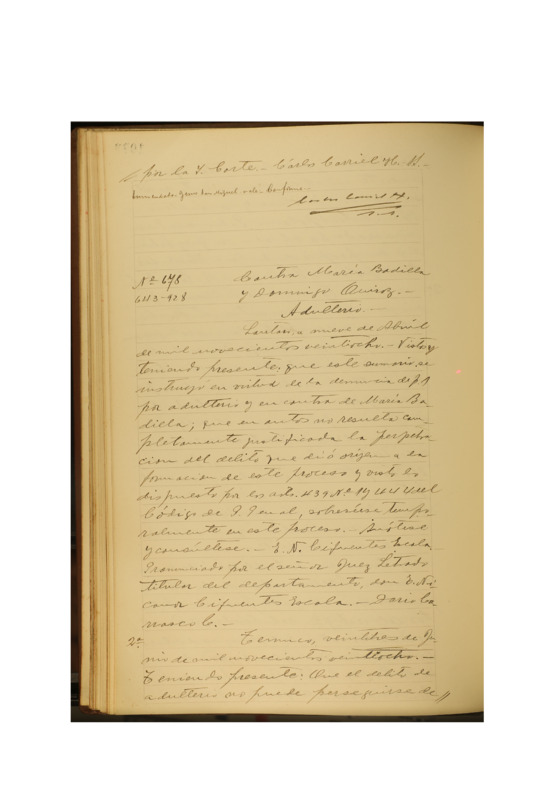 por la I. Corte.- Carlos Carriel H.
Nº 678
643-928
Contra María Badilla
y Domingo Quiroz.-
Adulterio.-
Lautaro, a nueve de Abril
de mil novecientos veintiocho.- Vistos y
teniendo presente: que este sumario se
instruyó en virtud de la denuncia de f 1
por adulterio y en contra de María Ba-
dilla; que en autos no resulta com-
pletamente justificada la perpetra-
cion del delito que dió orígen a la
formacion de este proceso y visto lo
dispuesto por los arts. 439 Nº 1º y 444 del
Código de P. Penal, sobreséese tempo-
ralmente en este proceso.- Anótese
y consúltese.- E. N. Cifuentes Escala.
Pronunciado por el señor Juez Letrado
titular del departamento, don E. Ni-
canor Cifuentes Escala.- Dario Ca-
rrasco C.-
2ª
Temuco, veintitres de Ju-
nio de mil novecientos veintiocho.-
Teniendo presente: Que el delito de
adulterio no puede perseguirse de //